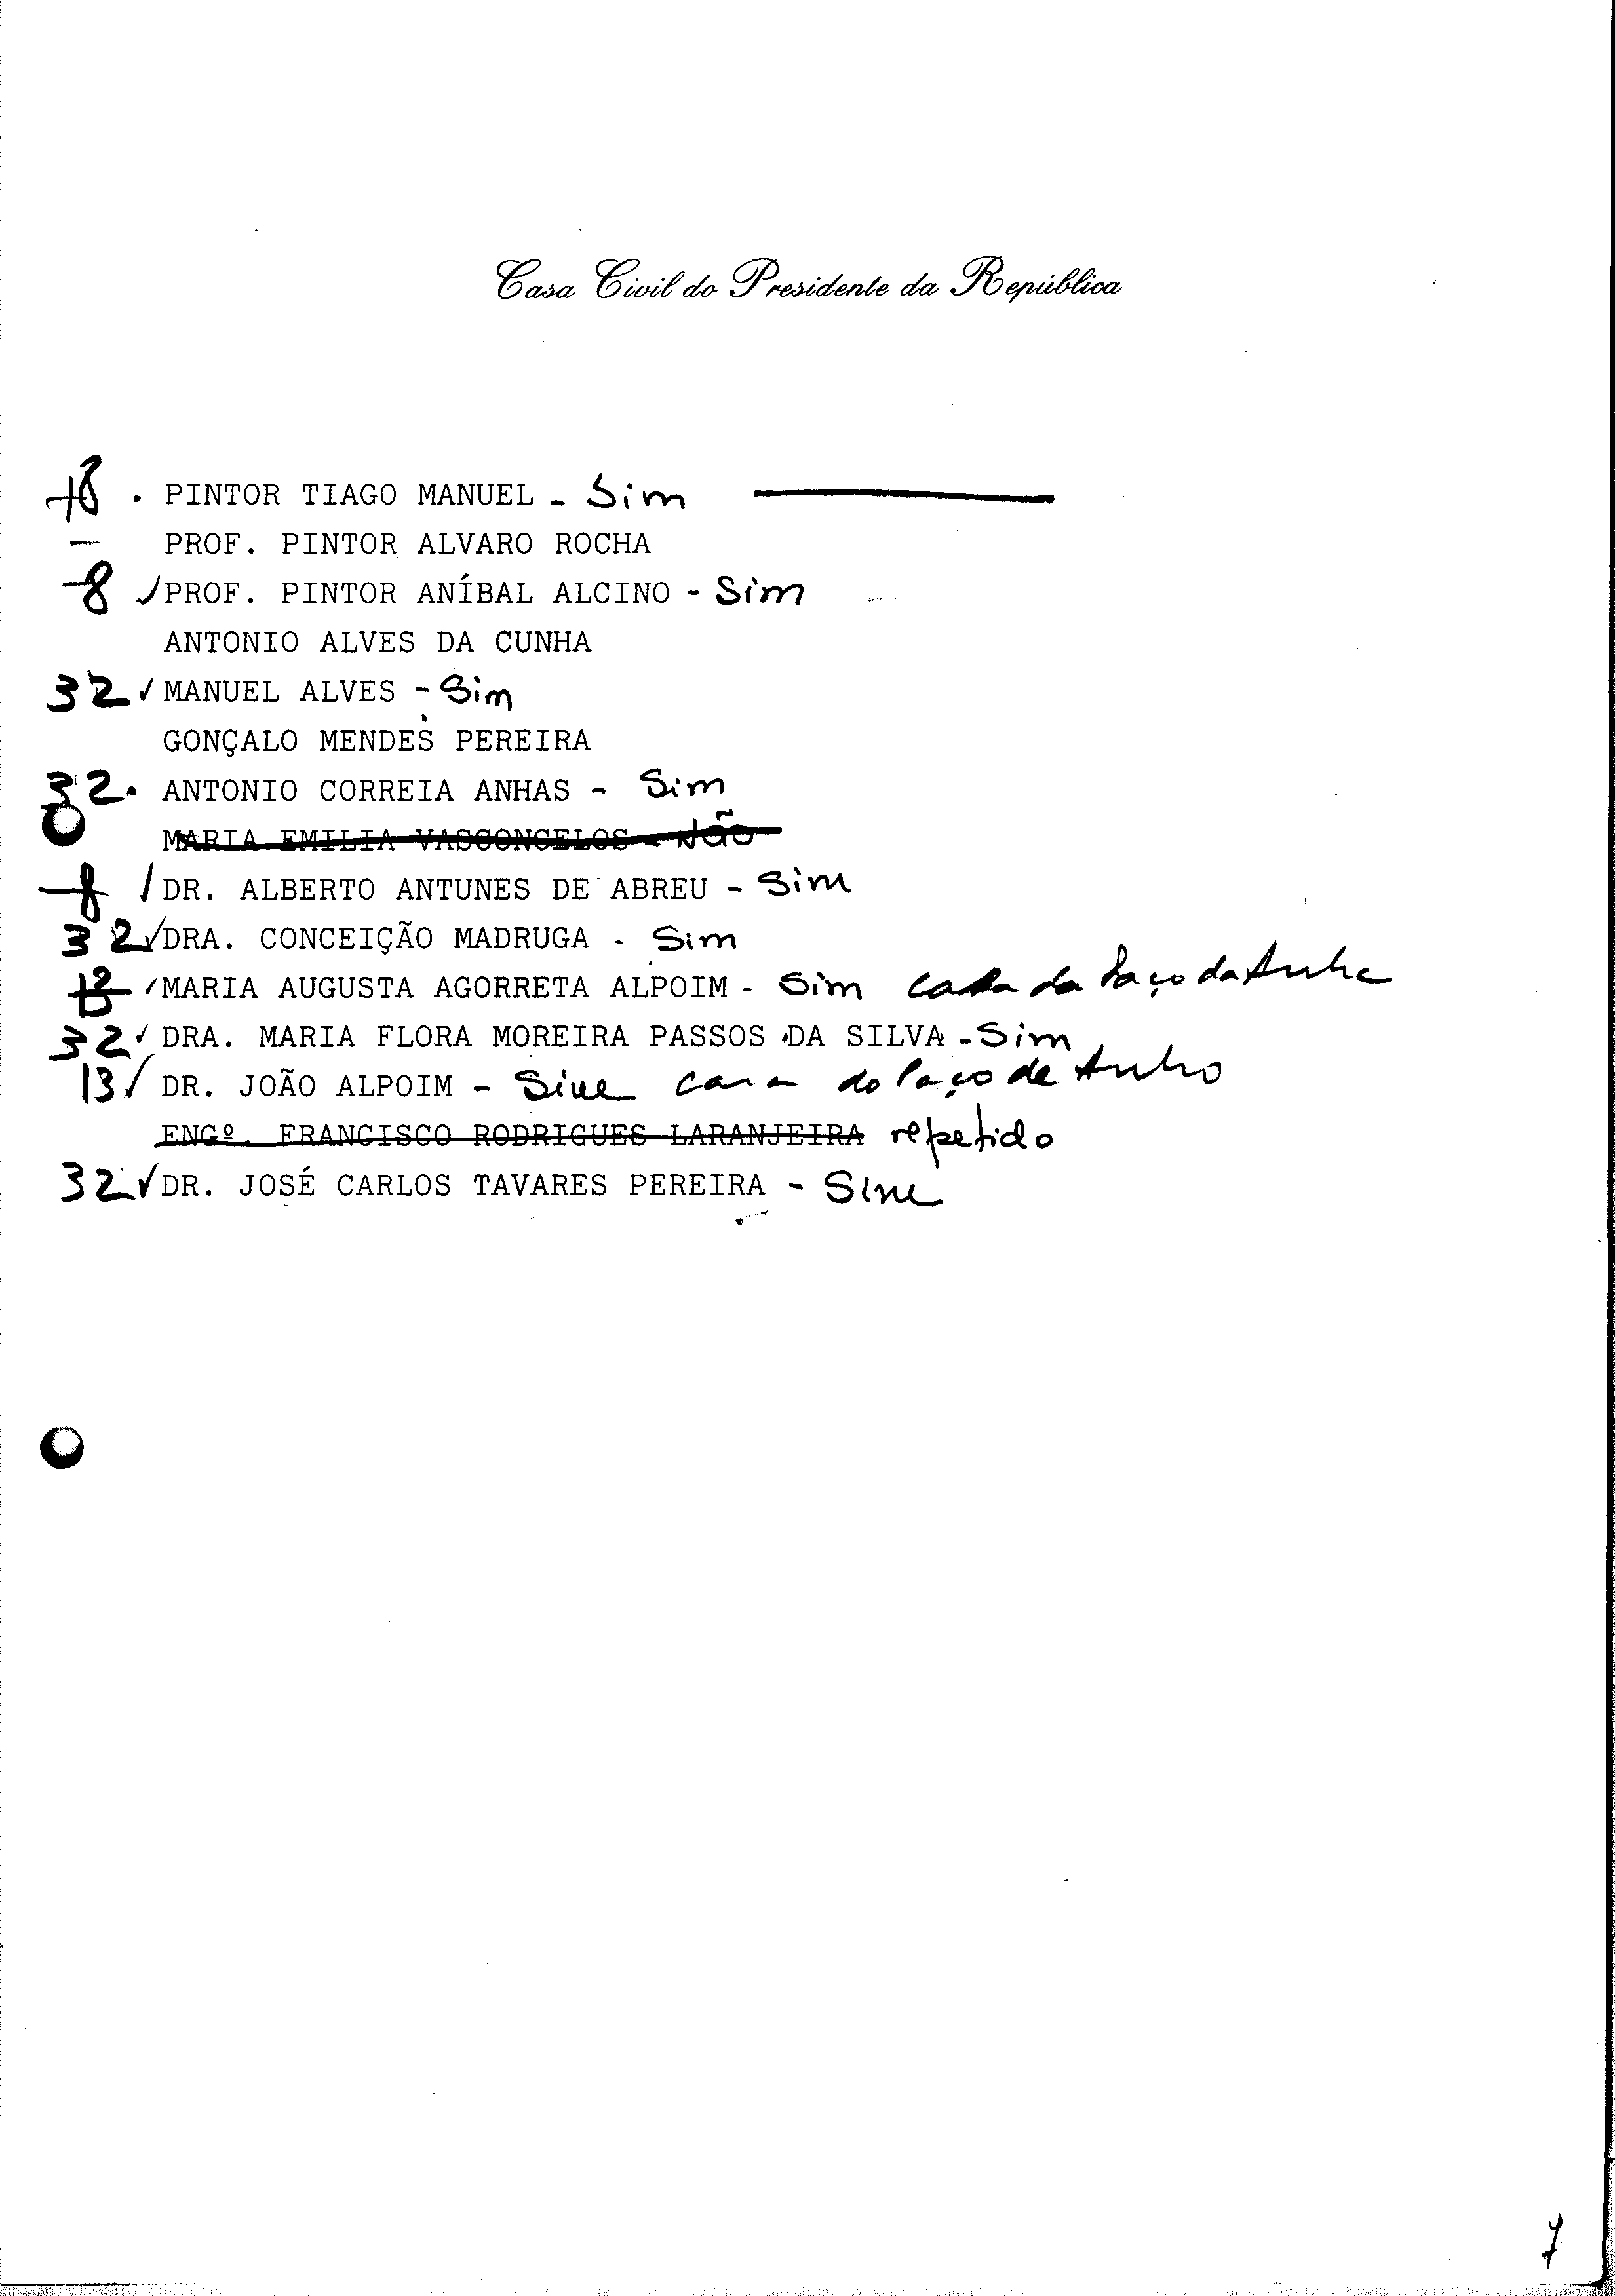 Casa Civil do Presidente da República
. PINTOR TIAGO MANUEL - Sim
PROF. PINTOR ALVARO ROCHA
8 ✓ PROF. PINTOR ANÍBAL ALCINO - Sim
ANTONIO ALVES DA CUNHA
32 ✓ MANUEL ALVES - Sim
GONÇALO MENDES PEREIRA
32. ANTONIO CORREIA ANHAS - Sim
MARIA EMILIA VASCONCELOS - Não
8 / DR. ALBERTO ANTUNES DE ABREU - Sim
32 ✓ DRA. CONCEIÇÃO MADRUGA - Sim
13 ✓ MARIA AUGUSTA AGORRETA ALPOIM - Sim casa da Paço da
32 ✓ DRA. MARIA FLORA MOREIRA PASSOS DA SILVA - Sim
13 ✓ DR. JOÃO ALPOIM - Sim casa do Paço de
ENGº. FRANCISCO RODRIGUES LARANJEIRA repetido
32 ✓ DR. JOSÉ CARLOS TAVARES PEREIRA - Sim
7